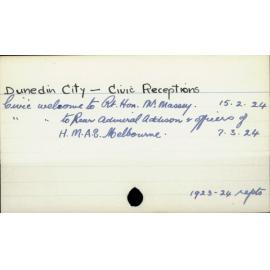 Dunedin City — Civic Receptions
Civic welcome to Rt. Hon. Mr Massey. 15.2.24
" " to Rear Admiral Addison & officers of
H.M.A.S. Melbourne. 7.3.24
1923-24 repts